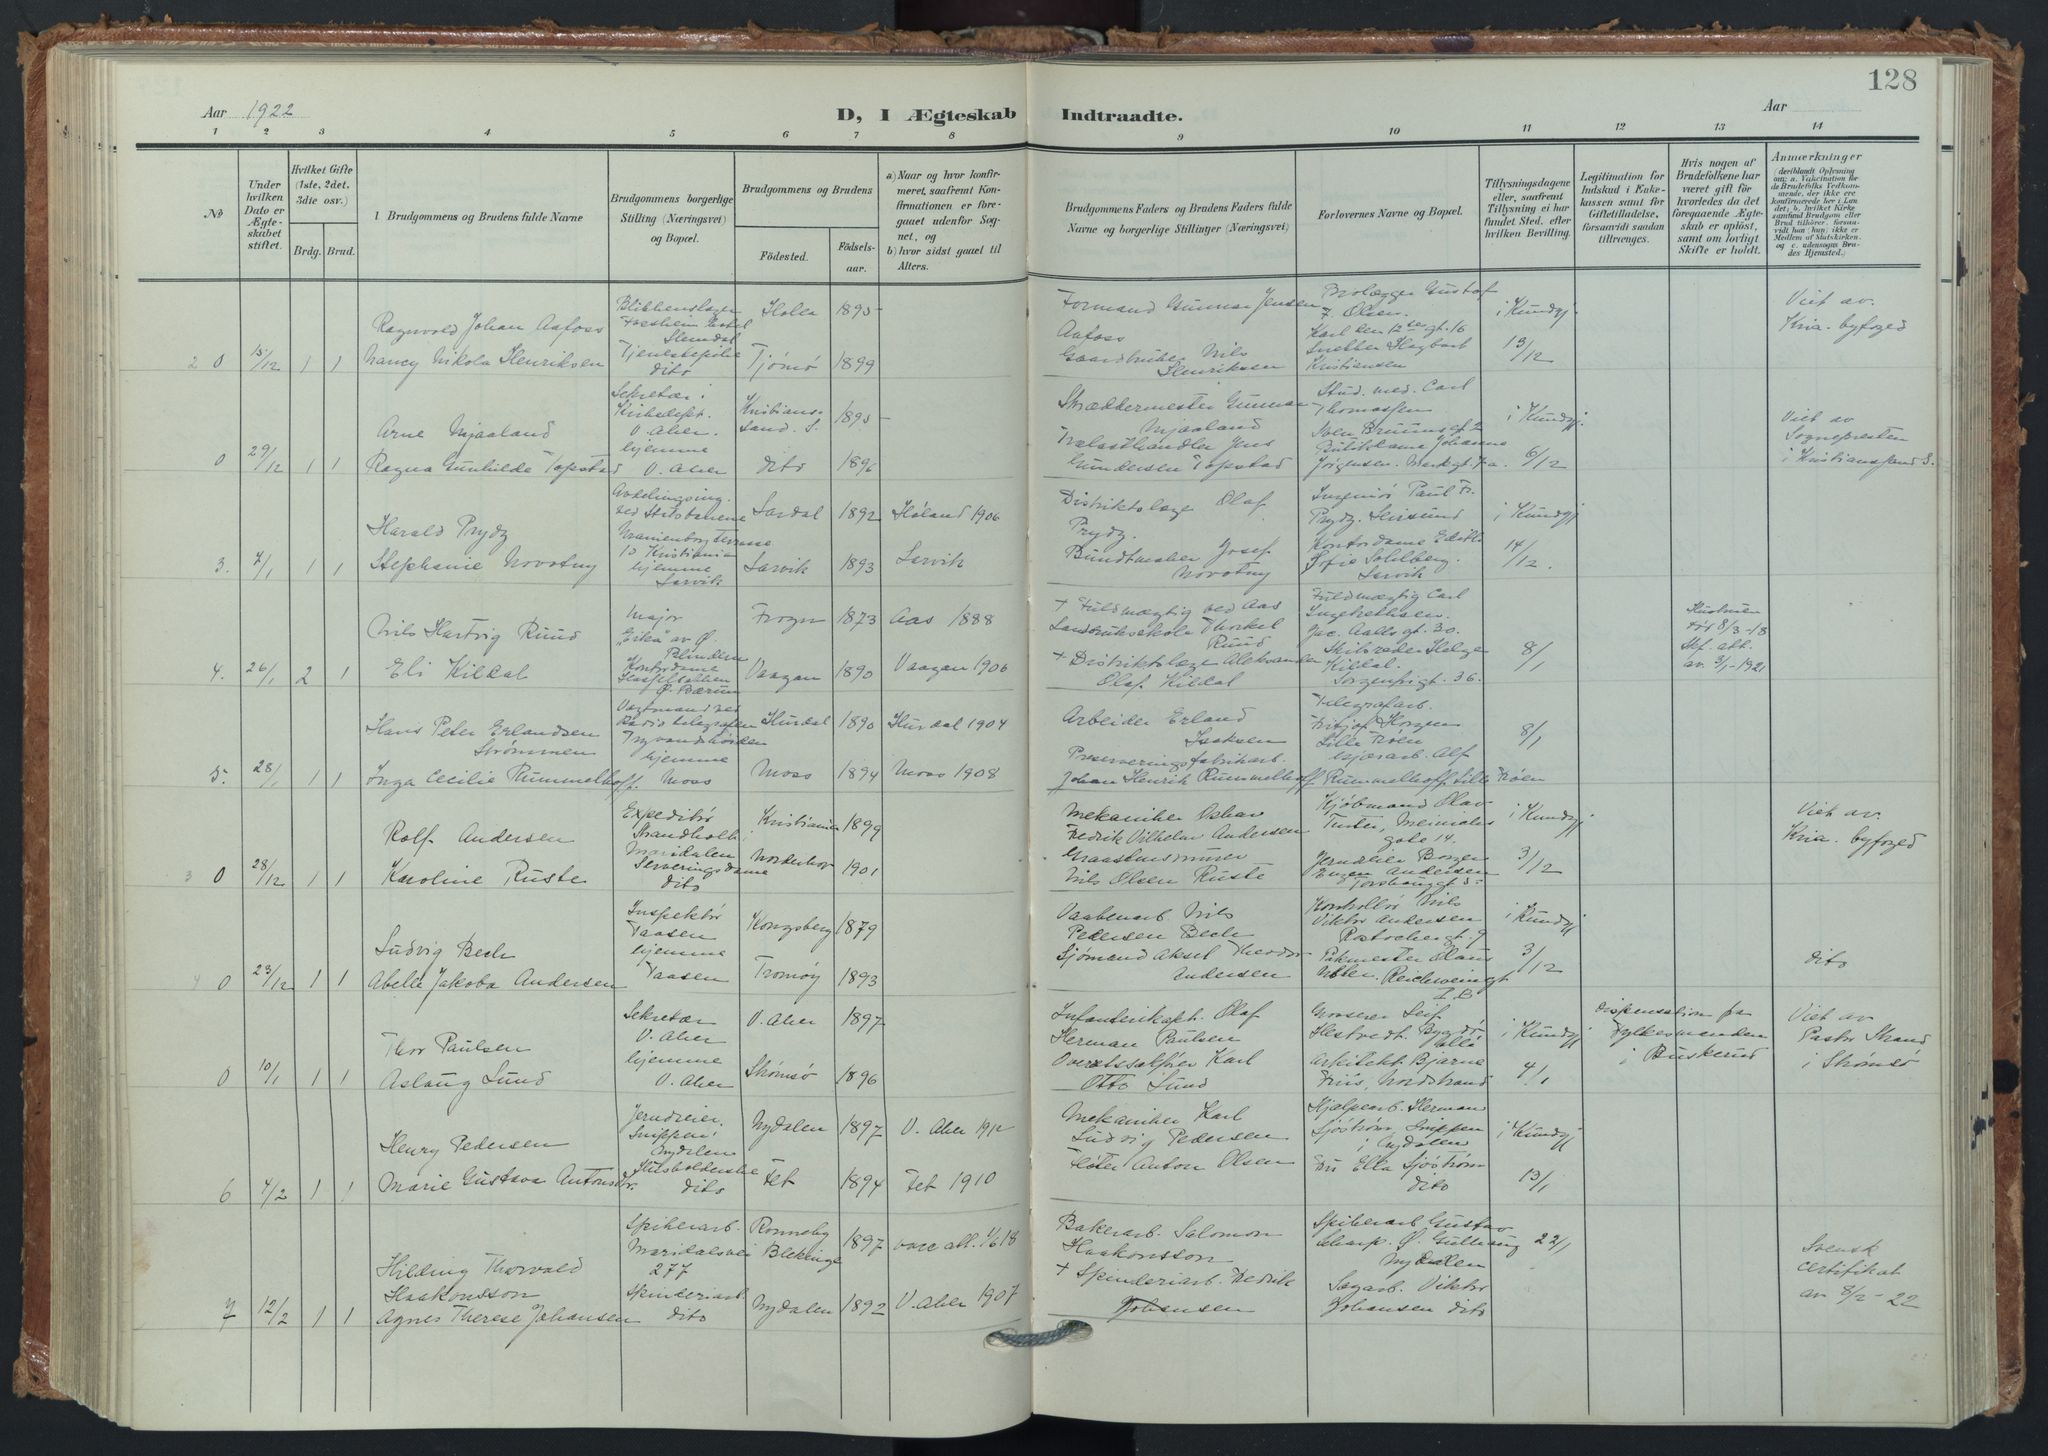 128
Aar 1922
D, I Ægteskab Indtraadte.
Aar
1 2 3 4 5 6 7 8 9 10 11 12 13 14
No
Under hvilken Dato er Ægteskabet stiftet.
Hvilket Gifte (1ste, 2det, 3die osv.)
Brdg. Brud.
1. Brudgommens og Brudens fulde Navne
Brudgommens borgerlige Stilling (Næringsvei) og Bopæl.
Brudgommens og Brudens
Födested.
Födselsaar.
a) Naar og hvor konfirmeret, saafremt Konfirmationen er foregaaet udenfor Sognet, og
b) hvor sidst gaaet til Alters.
Brudgommens Faders og Brudens Faders fulde Navne og borgerlige Stillinger (Næringsvei)
Forlovernes Navne og Bopæl.
Tillysningsdagene eller, saafremt Tillysning ei har fundet Sted, efter hvilken Bevilling.
Legitimation for Indskud i Enkekassen samt for Giftetilladelse, forsaavidt saadan tiltrænges.
Hvis nogen af Brudefolkene har været gift för hvorledes da det foregaaende Ægteskab er oplöst, samt om lovligt Skifte er holdt.
Anmærkninger
(deriblandt Oplysning om: a. Vakcination for de Brudefolks Vedkommende, der ikke ere konfirmerede her i Landet; b. hvilket Kirkesamfund Brudgom eller Brud tilhörer, forsaavidt han (hun) ikke er Medlem af Statskirken og c. udensogns Brudes Hjemsted.)
Ragnvald Johan Aafoss
Holla 1895
Formand Gunnar Jensen Aafoss
Brolægger Gustaf F. Olsen.
Karl den 12tes gt. 16
i Kundgj
Viet av Kria. byfoged
2 0 15/12 1 1 Nancy Nikola Henriksen
Tjenestepike dito
Tjømø 1899
Gaardbruker Nils Henriksen
Kristiansen
13/12
Arne Mjaaland
Sekretær i Kirkedept. V. Aker.
Kristianssand. S. 1895
Skræddermester Gunnar Mjaaland
Stud. med. Carl Thomassen
Sven Bruunsgt 2
i Kundgj.
Viet av Sognepresten i Kristianssand S.
0 29/12 1 1 Ragna Gunhilde Topstad
hjemme V. Aker
dito 1896
Trælasthandler Jens Gundersen Topstad
Butikdame Johanne Jørgensen.
6/12
Harald Prydz
Avdelingsing. ved Statsbanene
Uranienborg Terrasse 10 Kristiania
Lardal 1892 Høland 1906
Distriktslæge Olaf Prydz.
Ingeniør Paul Fr. Prydz.
i Kundgj
3. 7/1 1 1 Stephanie Novotny
hjemme Larvik
Larvik 1893 Larvik
Bundtmaker Josef Novotny
Kontordame Edith Sofie Sohlberg. Larvik
14/12.
Nils Hartvig Ruud
Major "Eika" av Ø.
Frogn 1873 Aas 1888
+ Fuldmægtig ved Aas Landbruksskole Thorkel Ruud
Fuldmægtig Carl Ingebrethsen.
Jac. Aalls gt. 30.
Hustruen død 8/3-18
Skf. att. av 3/1-1921
4. 26/1 2 1 Eli Kildal
Kontordame
Ø. Bærum
Vaagan 1890 Vaagan 1906
+ Distriktslæge Aleksander Olaf Kildal
Skibsreder Helge Kildal.
Sorgenfrigt. 36.
8/1
Hans Peter Erlandsen Strømmen
Vagtmand ved Radiotelegrafen Tryvandshøiden
Hurdal 1890 Hurdal 1904
Arbeider Erland Isaksen
Telegrafarb. Fritjof Horgen Lille Frøen
8/1
5. 28/1 1 1 Inga Cecilie Rummelhoff.
hjemme Moss
Moss 1894 Moss 1908
Preserveringsfabrikarb. Johan Henrik Rummelhoff
Alf Rummelhoff Lille Frøen
Rolf Andersen
Expeditør
Maridalen
Kristiania 1899
Mekaniker Oskar Fredrik Vilhelm Andersen
Kjøbmand Olav
gate 14.
i Kundgj
Viet av Kria. byfoged
3 0 28/12 1 1 Karoline Ruste
Serveringsdame dito
Norderhov 1901
Graastensmurer Nils Olsen Ruste
Eugen Andersen
3/12
Ludvig Bech
Inspektør Taasen
Kongsberg 1879
Vaabenarb. Nils Pedersen Bech
Kontrollør Nils Viktor Andersen
Rostockergt. 9
i Kundgj
4 0 23/12 1 1 Abelle Jakoba Andersen
hjemme Taasen
Tromøy 1893
Sjømand Aksel Theodor Andersen
Pakmester Olaus
3/12
dito
Thor Paulsen
Sekretær V. Aker
V. Aker 1897
Infanterikapt. Olaf Herman Paulsen
Grosserer Leif
Bygdø allé
i Kundgj
Dispensation fra Fylkesmanden i Buskerud
Viet av Pastor Strand i Strømsø
0 10/1 1 1 Aslaug Lund
hjemme V. Aker
Strømsø 1896
Overretssakfører Karl Otto Lund
Arkitekt Bjarne Friis, Nordstrand
4/1
Henry Pedersen
Jerndreier. Snippen Nydalen
Nydalen 1897 V. Aker 1912
Mekaniker Karl Ludvig Pedersen
Hjælpearb. Herman Sjöström, Snippen i Nydalen
i Kundgj
6 4/2 1 1 Marie Gustava Antonsdtr.
Husholderske dito
Fet 1894 Fet 1910
Fløter Anton Olsen
Fru Ella Sjöström dito
13/1
Hilding Thorvald Haakonsson
Spikerarb. Maridalsvei 277
Ronneby Blekinge 1897
Bakerarb. Salomon Haakonsson
Spikerarb Gustav
Nydalen
22/1
Svensk certifikat av 8/2-22
7 12/2 1 1 Agnes Therese Johansen
Spinderiarb dito
Nydalen 1892 V. Aker 1907
+ Spinderiarb. Fredrik Johansen
Sagarb. Viktor Johansen dito